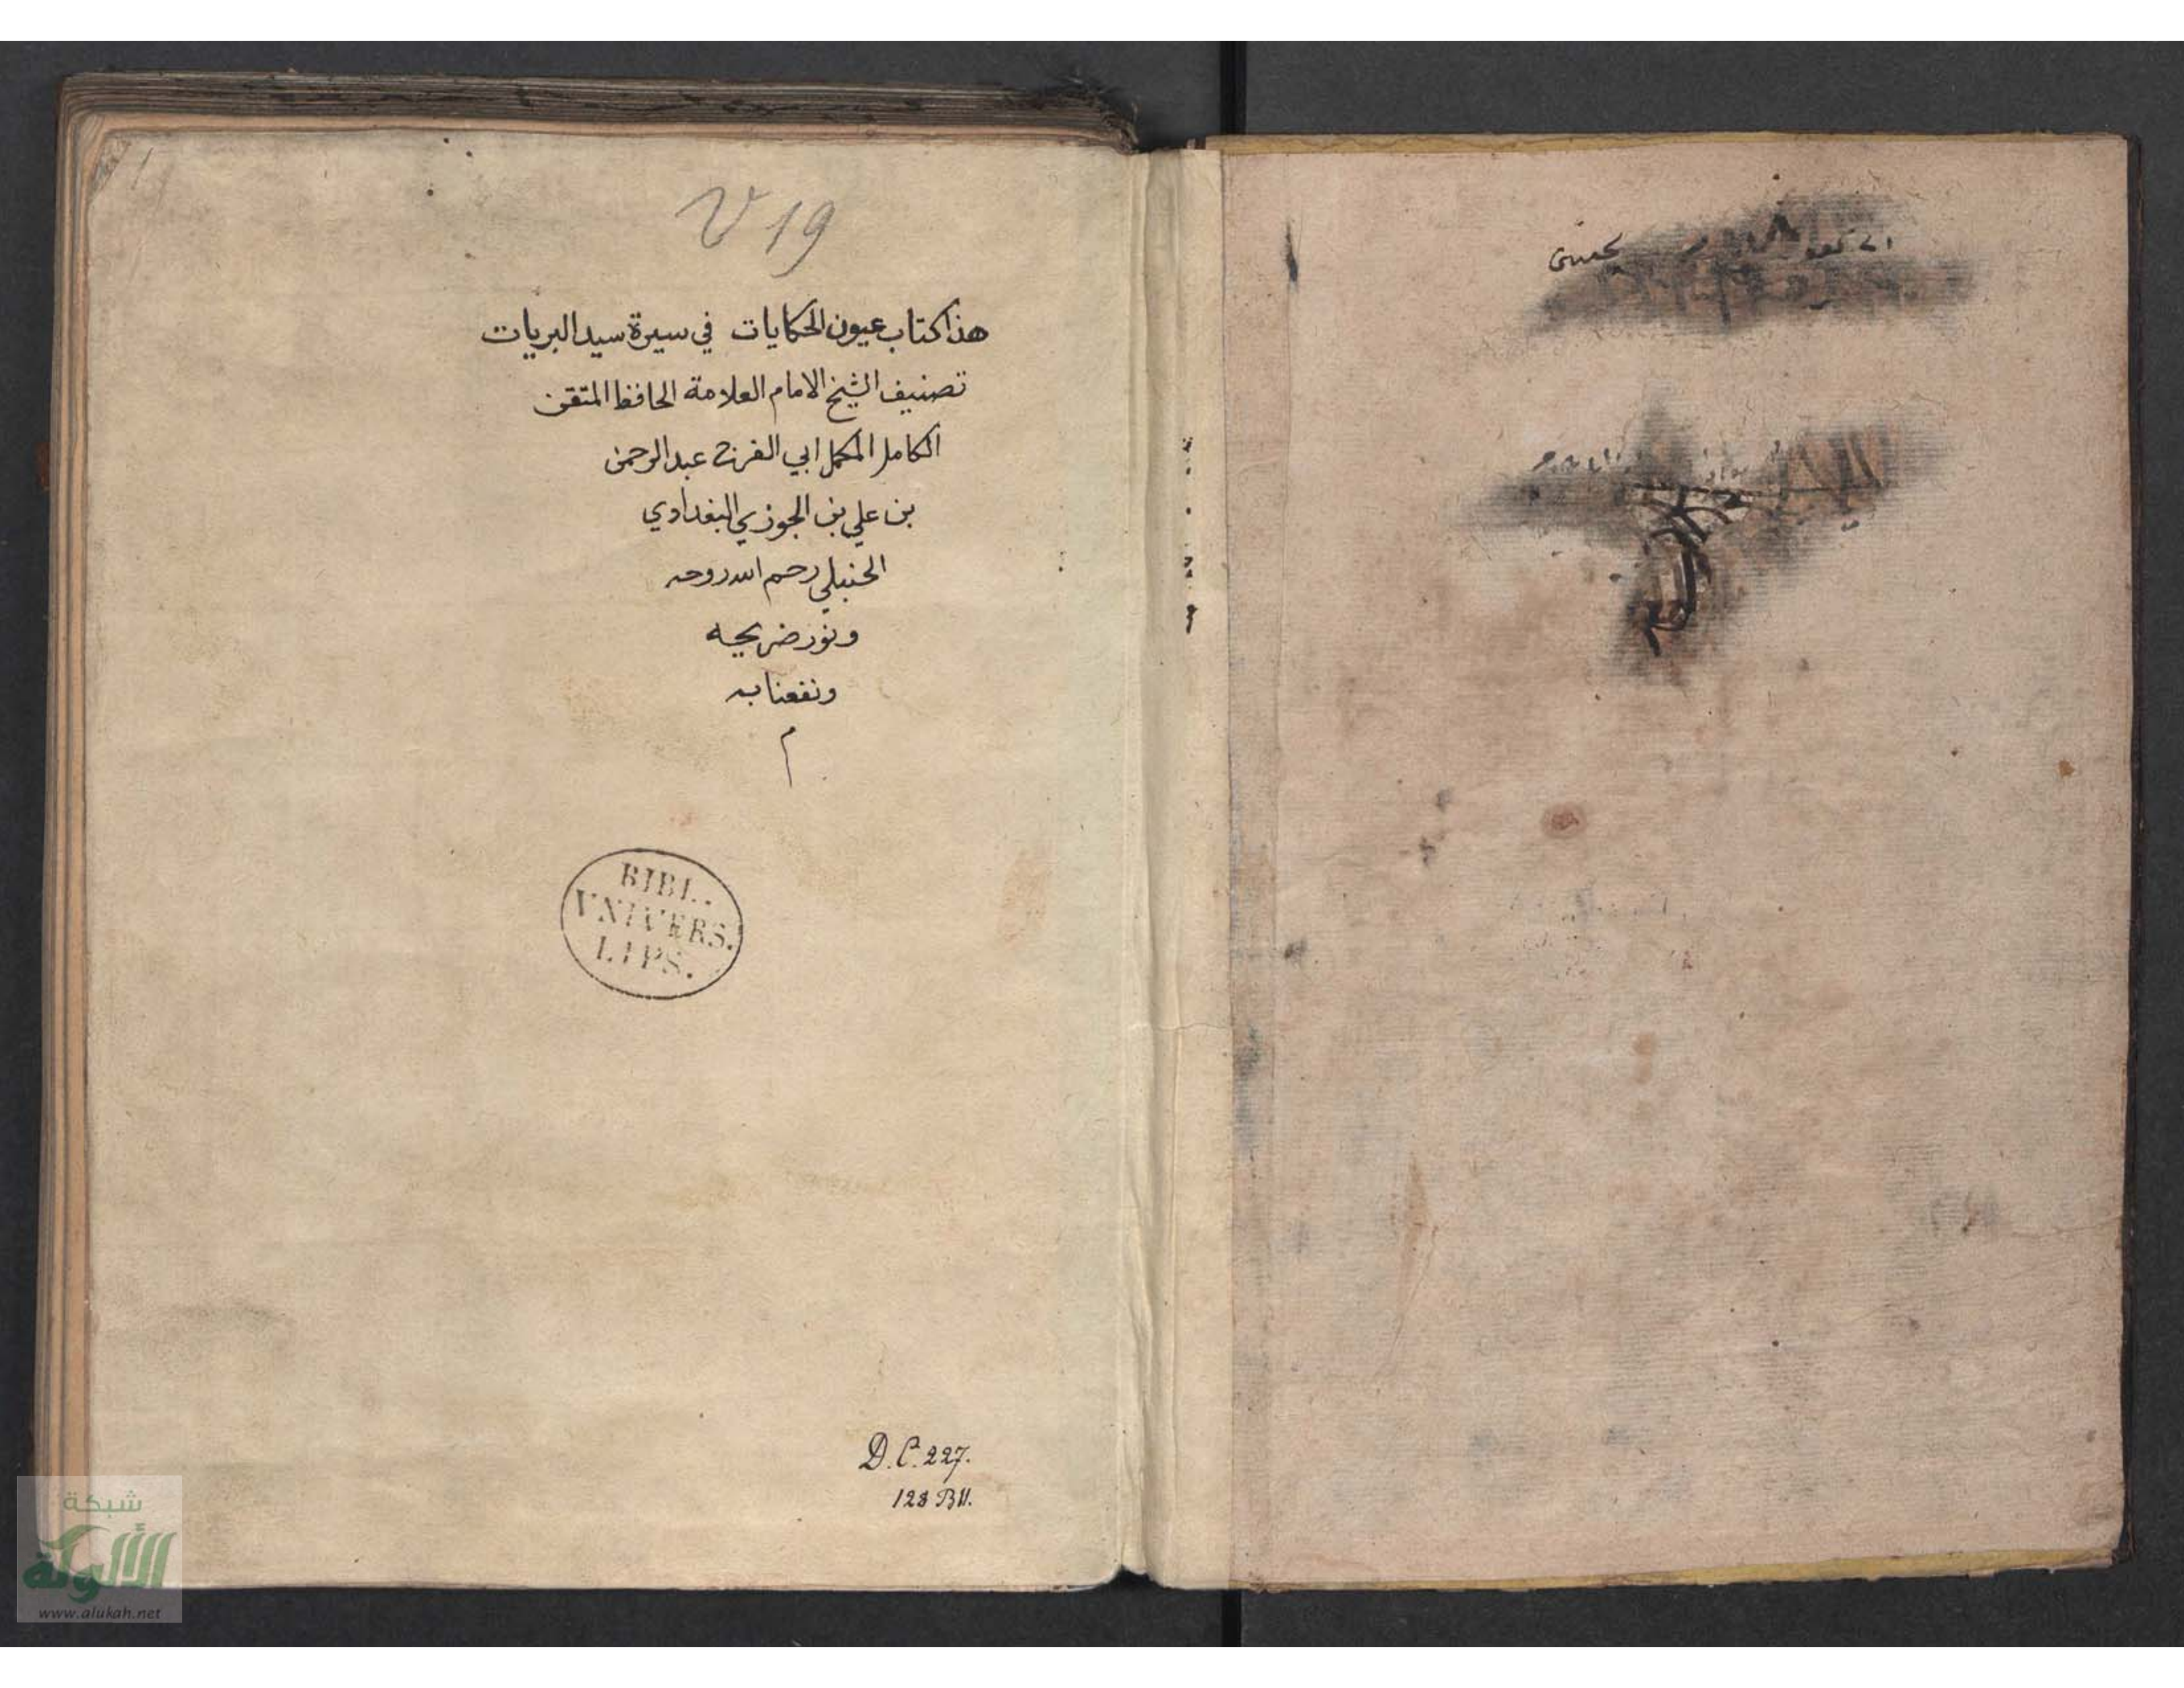 V 19
هذا كتاب عيون الحكايات في سيرة سيد البريات
تصنيف الشيخ الامام العلامة الحافظ المتقن
الكامل المكمل ابي الفرج عبد الرحمن
بن علي بن الجوزي البغدادي
الحنبلي رحم الله روحه
ونور ضريحه
ونفعنا به
م
BIBL.
VNIVERS.
LIPS.
D.C. 227.
شبكة
الألوكة
www.alukah.net